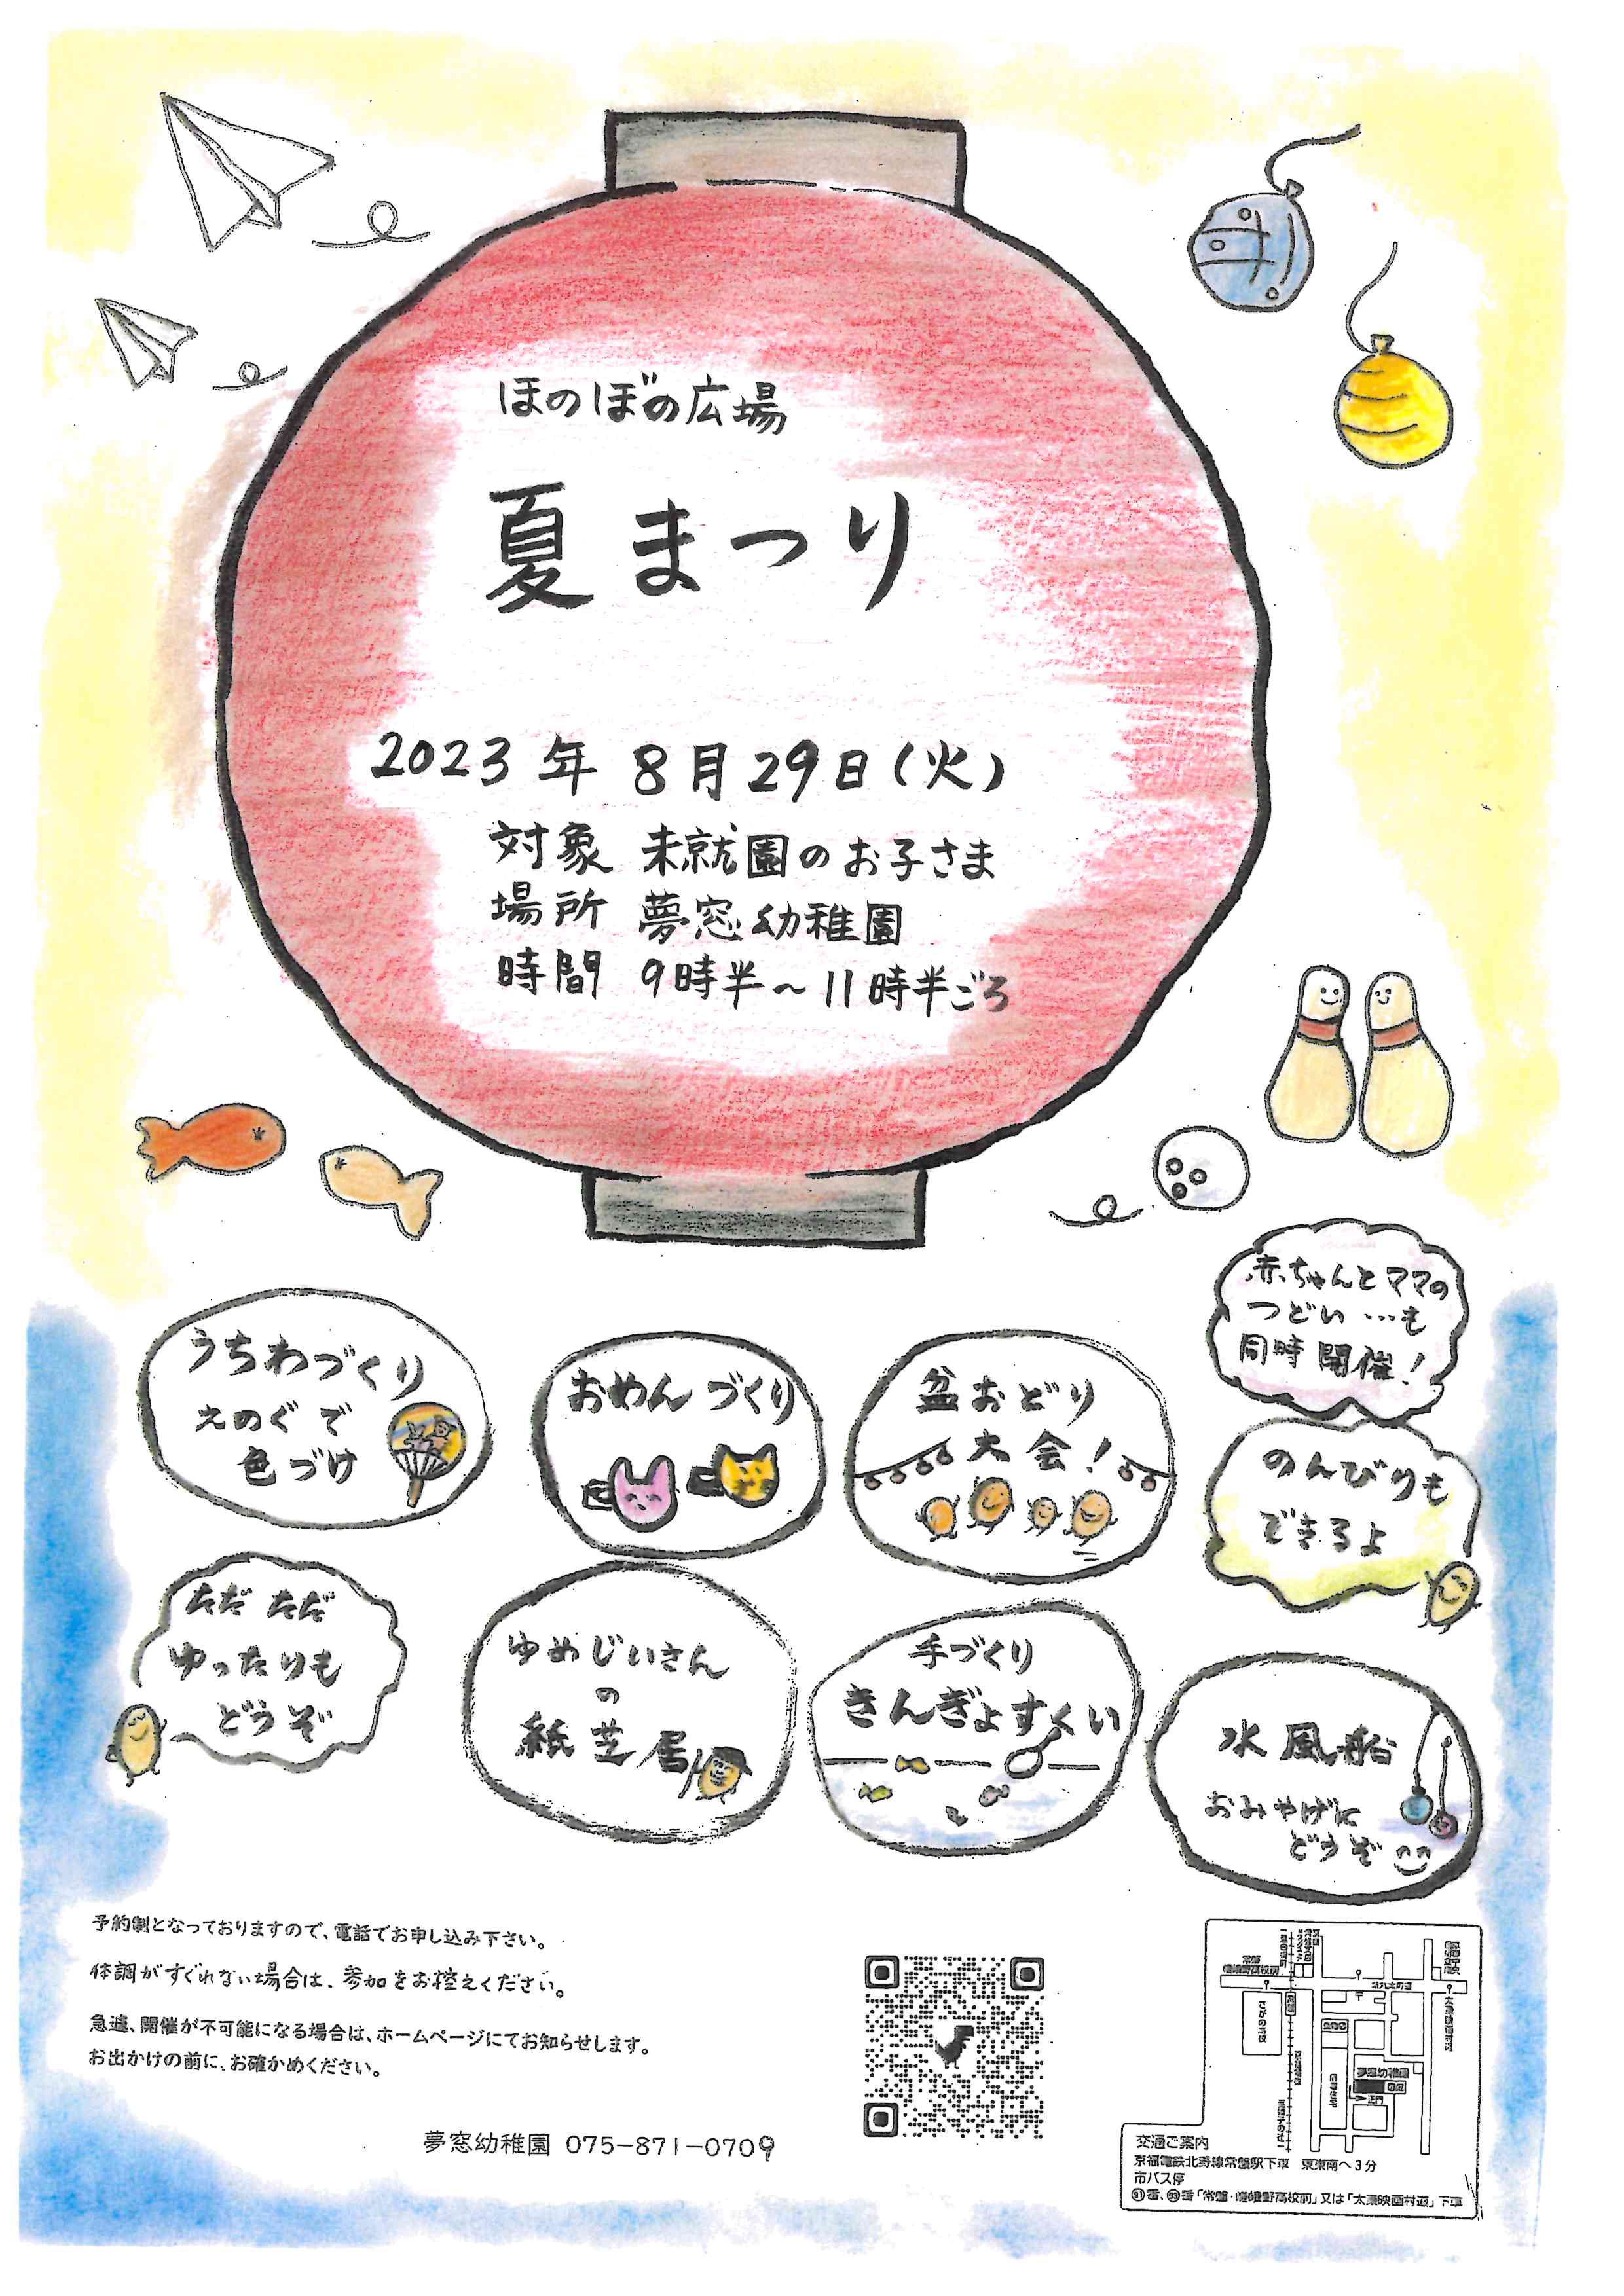 ほのぼの広場
夏まつり
2023年 8月29日(火)
対象 未就園のお子さま
場所 夢窓幼稚園
時間 9時半~11時半ごろ
赤ちゃんとママの
つどい…も
同時開催!
うちわづくり
えのぐで
色づけ
おめんづくり
盆おどり
大会!
のんびりも
できるよ
ただただ
ゆったりも
どうぞ
ゆめじいさん
の
紙芝居
手づくり
きんぎょすくい
水風船
おみやげに
どうぞ
予約制となっておりますので、電話でお申し込み下さい。
体調がすぐれない場合は、参加をお控えください。
急遽、開催が不可能になる場合は、ホームページにてお知らせします。
お出かけの前に、お確かめください。
夢窓幼稚園 075-871-0709
夢窓幼稚園
正門
交通ご案内
京福電鉄北野線常盤駅下車 東東南へ3分
市バス停
91番、93番「常盤・嵯峨野高校前」又は「太秦映画村道」下車